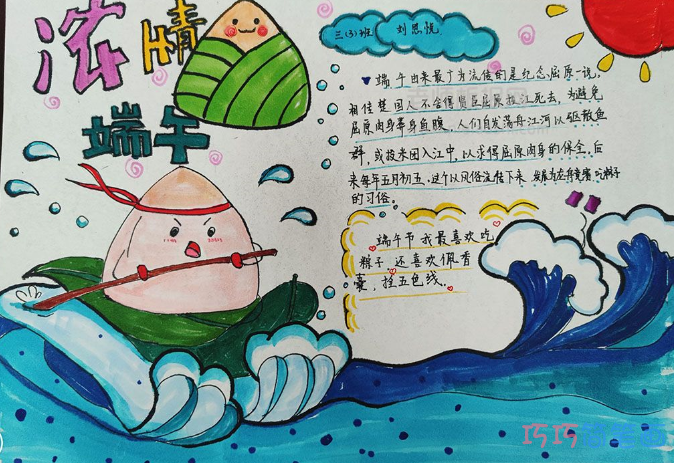 浓情
端午
三(3)班 刘思悦
端午由来最广为流传的是纪念屈原一说,
相传楚国人不舍得贤臣屈原投江死去,为避免
屈原肉身喂身鱼腹,人们自发荡舟江河以驱散鱼
群,或投米团入江中,以求得屈原肉身的保全,后
来每年五月初五,这个以风俗流传下来 发展为
的习俗。
端午节我最喜欢吃
粽子,还喜欢佩香
囊,挂五色线。
巧巧简笔画